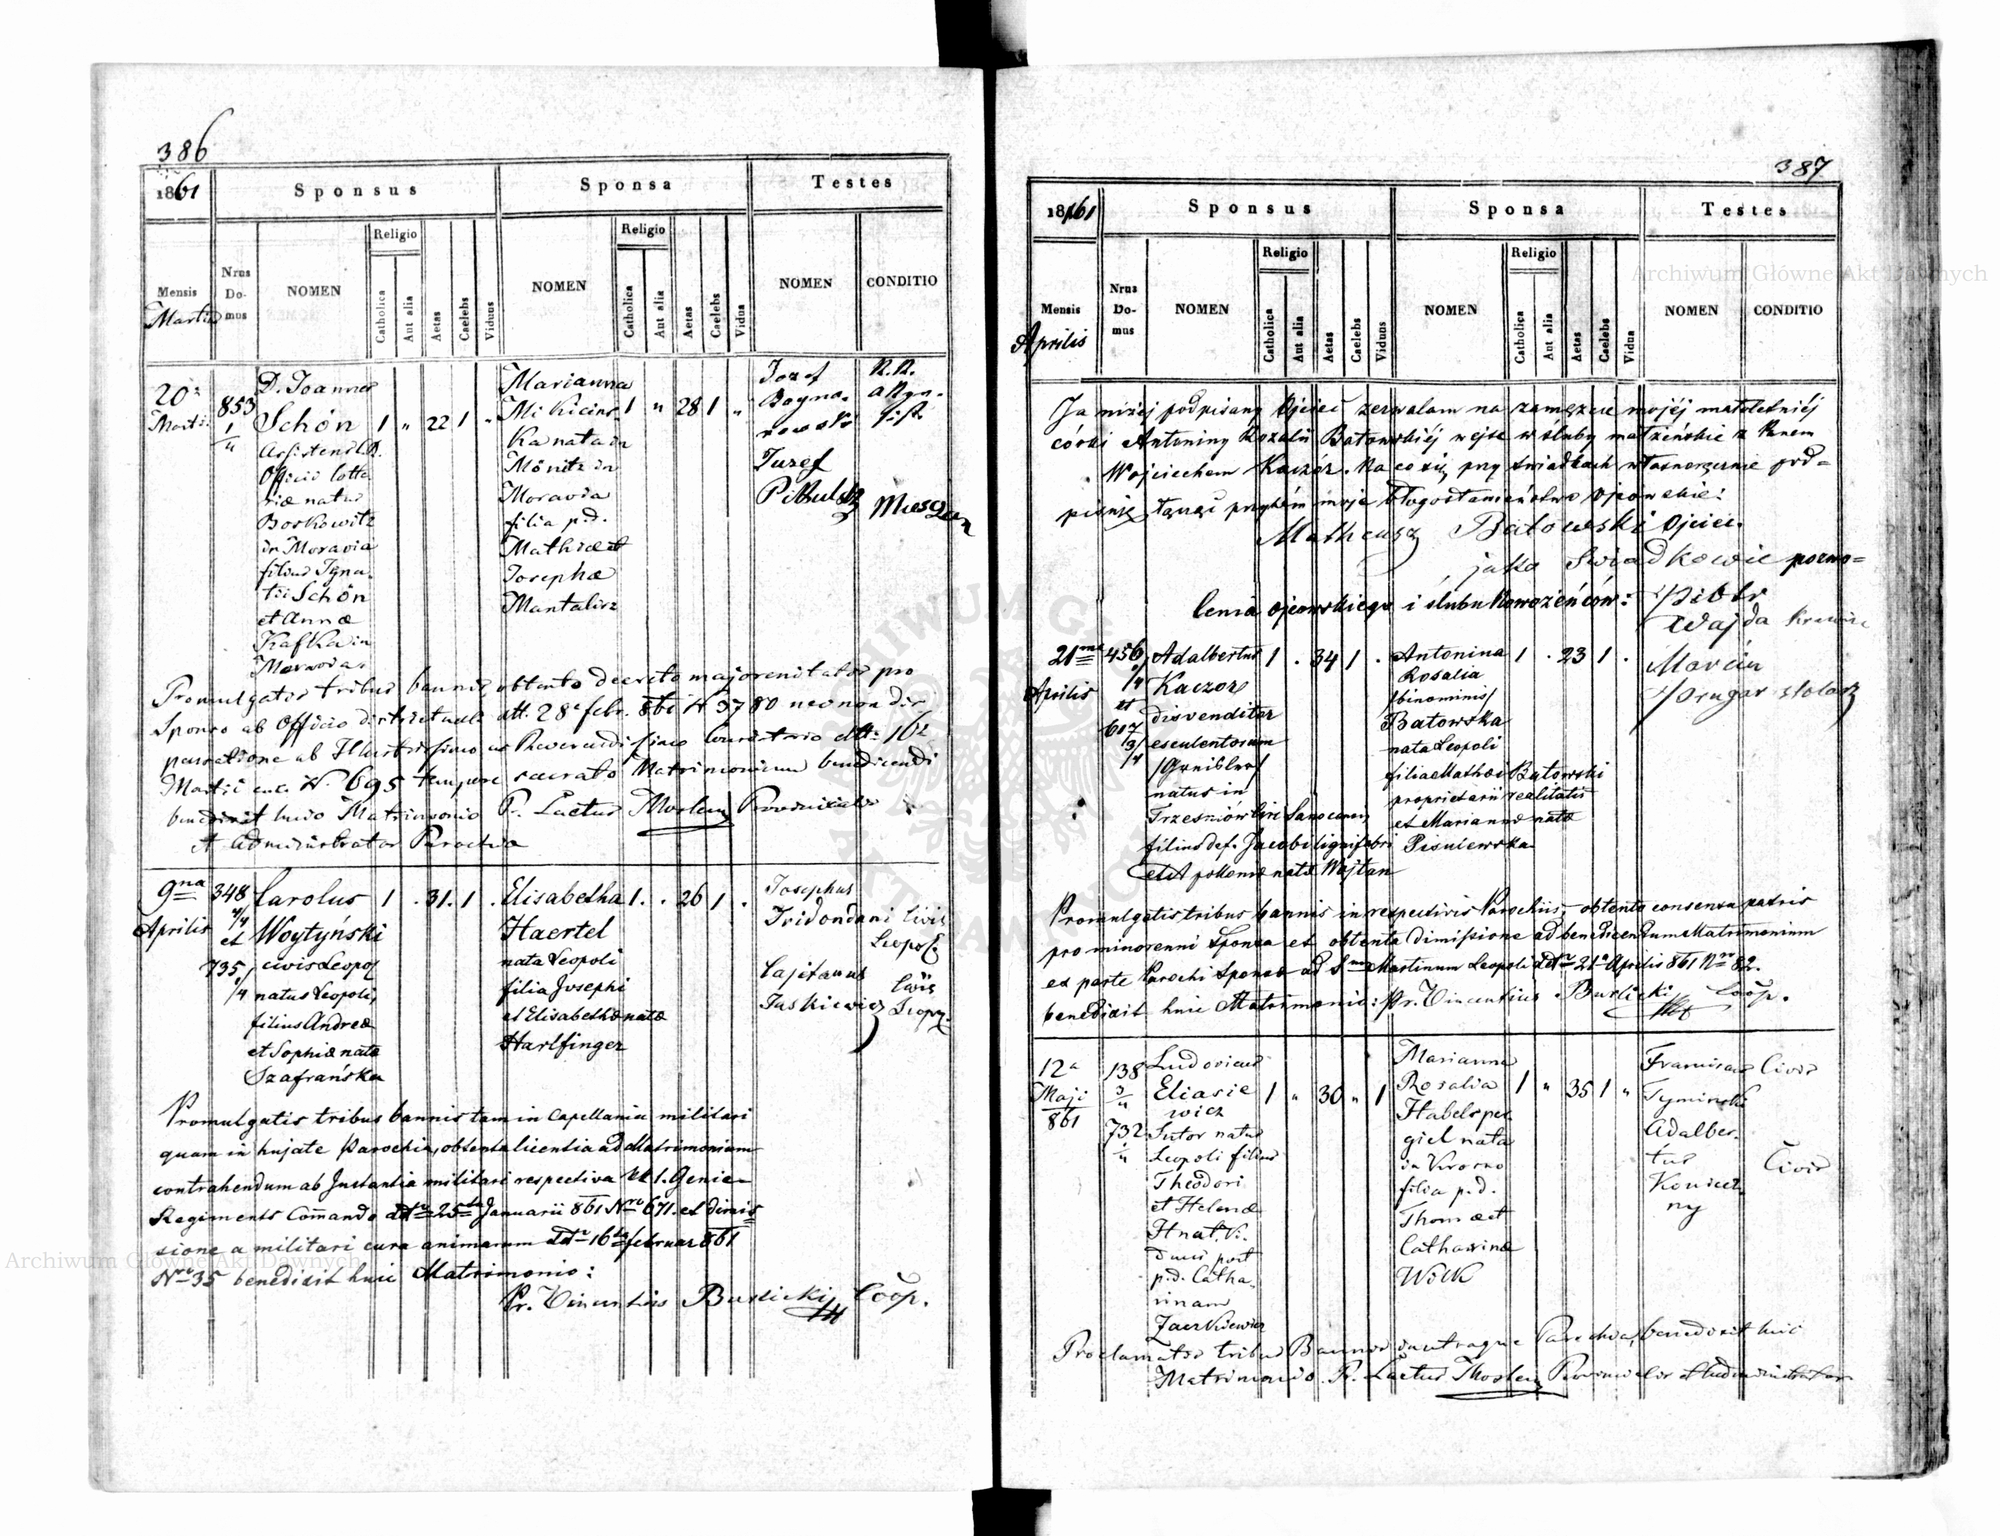 386
1861
Sponsus
Sponsa
Testes
Mensis
Martii
Nrus
Do-
mus
NOMEN
Religio
Catholica
Aut alia
Aetas
Caelebs
Viduus
NOMEN
Religio
Catholica
Aut alia
Aetas
Caelebs
Vidua
NOMEN
CONDITIO
20a
Martii
853
1/4
D. Joannes
Schön
Assistens
Officii Lotte
riæ natus
Boskowitz
in Moravia
filius Igna-
tii Schön
et Annæ
Kafka in
Moravia.
1 " 22 1 "
Marianna
Kanata in
Mönitz in
Moravia
filia p.d.
Mathiæ et
Josephæ
1 " 28 1 "
Jozef
Bogna-
nowski
Juzef
Pikulski
Promulgatis tribus bannis, obtento decreto majorenitatis pro
Sponso ab Officio districtuali ddt. 28a febr. 861 N 3780 necnon dis
pensatione ab Illustrissimo ac Reverendissimo Consistorio ddto 16a
Martii a.c. N. 695 tempore sacrato Matrimonium benedicendi
benedixit huic Matrimonio Pr. Laetus Moslen Provincialis
et Administrator Parochiæ
9na
Aprilis
348
4/4
et
735/
/4
Carolus
Woytyński
civis Leopol
natus Leopoli,
filius Andreæ
et Sophiæ natæ
Szafrańska
1 . 31. 1 .
Elisabetha
Haertel
nata Leopoli
filia Josephi
et Elisabethæ natæ
Harlfinger
1. . 26 1 .
Josephus
Tridondani civis
Leopol
Cajetanus
Jaskiewicz
Civis
Leopol.
Promulgatis tribus bannis tam in Capellania militari
quam in hujate Parochia, obtenta licentia ad Matrimonium
contrahendum ab Instantia militari respectiva K.K. 1. Genie-
Regiments Comando ddto 25ta Januarii 861 Nro 671. et dimis
sione a militari cura animarum ddto 16ta februar 861
Nro 35 benedixit huic Matrimonio:
Pr. Vincentius Burlicki Coop.
387
1861
Sponsus
Sponsa
Testes
Mensis
Aprilis
Nrus
Do-
mus
NOMEN
Religio
Catholica
Aut alia
Aetas
Caelebs
Viduus
NOMEN
Religio
Catholica
Aut alia
Aetas
Caelebs
Vidua
NOMEN
CONDITIO
Ja niżej podpisany Ojciec zezwalam na zamęzcie mojéj małoletniéj
córki Antoniny Rozalii Batowskiéj wejść w śluby małżeńskie z Panem
Wojciechem Kaczór. Na co się przy świadkach własnoręcznie pod-
pisuję łącząc przytém moje błogosławieństwo Ojcowskie:
Matheusz Batowski Ojciec.
jako Swiadkowie pozwo-
lenia ojcowskiego i ślubu Nowożeńców:
Piotr
Wajda
21ma
Aprilis
456
/4
et
607
3/
/4
Adalbertus
Kaczor
disvenditor
esculentorum
/Greibler/
natus in
filius def. Jacobi lignifabri
1 . 34 1 .
Antonina
Rosalia
/binominis/
Batowska
nata Leopoli
filia Mathæi Batowski
proprietarii realitatis
et Mariannæ natæ
Piśniewska
1 . 23 1 .
Marcin
Prugar stolarz
Promulgatis tribus bannis in respectivis Parochiis, obtento consensu patris
pro minorenni Sponsa et obtenta dimissione ad benedicendum Matrimonium
ex parte Parochi Sponsæ ad Sum Martinum Leopoli ddto 21a Aprilis 861 Nro 82.
benedixit huic Matrimonio: Pr. Vincentius Burlicki Coop.
12a
Maji
861
138
3/4
732
1/4
Ludovicus
Eliasie
wicz
Sutor natus
Leopoli filius
Theodori
et Helenæ
Hnat, Vi-
duus post
p.d. Catha-
rinam
1 " 30 " 1
Marianna
Rosalia
Habelsper
giel nata
in Krosno
filia p.d.
Thomæ et
Catharinæ
Wilk
1 " 35 1 "
Franciscus
Tyminski
Civis
Adalber-
tus
Koniecz
ny
Civis
Proclamatis tribus Bannis in utraque Parochia, benedixit huic
Matrimonio Pr. Laetus Moslen Provincialis et Administrator
Archiwum Główne Akt Dawnych
Archiwum Główne Akt Dawnych
ARCHIWUM GŁÓWNE AKT DAWNYCH